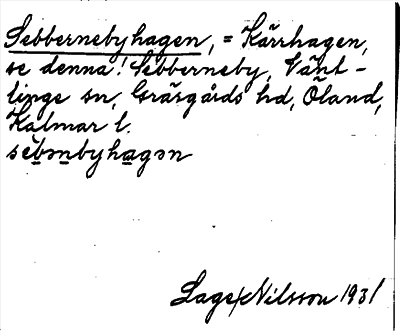 Sebbernebyhagen, = Kärrhagen,
se denna! Sebberneby, Vänt-
linge sn, Gräsgårds hd, Öland,
Kalmar l.
sèbənbyhagən
Lage Nilsson 1931